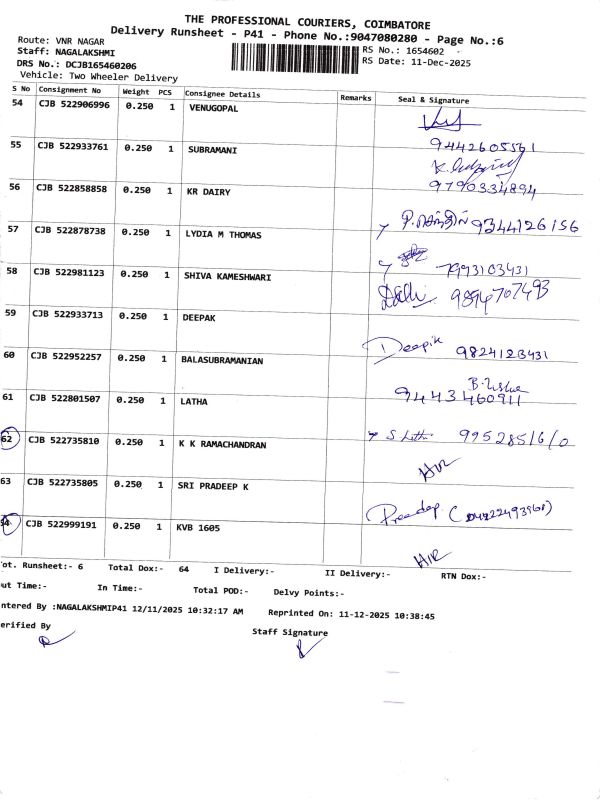 THE PROFESSIONAL COURIERS, COIMBATORE
Delivery Runsheet - P41 - Phone No.:9047080280 - Page No.:6
Route: VNR NAGAR
RS No.: 1654602
Staff: NAGALAKSHMI
RS Date: 11-Dec-2025
DRS No.: DCJB165460206
Vehicle: Two Wheeler Delivery
S No Consignment No Weight PCS Consignee Details Remarks Seal & Signature
54 CJB 522906996 0.250 1 VENUGOPAL
9442605561
55 CJB 522933761 0.250 1 SUBRAMANI
9790334894
56 CJB 522858858 0.250 1 KR DAIRY
9344126156
57 CJB 522878738 0.250 1 LYDIA M THOMAS
7993103431
58 CJB 522981123 0.250 1 SHIVA KAMESHWARI
9894707493
59 CJB 522933713 0.250 1 DEEPAK
Deepik 9824123431
60 CJB 522952257 0.250 1 BALASUBRAMANIAN
9443460911
61 CJB 522801507 0.250 1 LATHA
9952851610
62 CJB 522735810 0.250 1 K K RAMACHANDRAN
63 CJB 522735805 0.250 1 SRI PRADEEP K
64 CJB 522999191 0.250 1 KVB 1605
ot. Runsheet:- 6 Total Dox:- 64 I Delivery:- II Delivery:- RTN Dox:-
ut Time:- In Time:- Total POD:- Delvy Points:-
ntered By :NAGALAKSHMIP41 12/11/2025 10:32:17 AM Reprinted On: 11-12-2025 10:38:45
erified By
Staff Signature